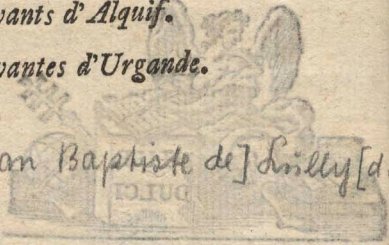 vants d'Alquif.
vantes d'Urgande.
an Baptiste de] Lully [d